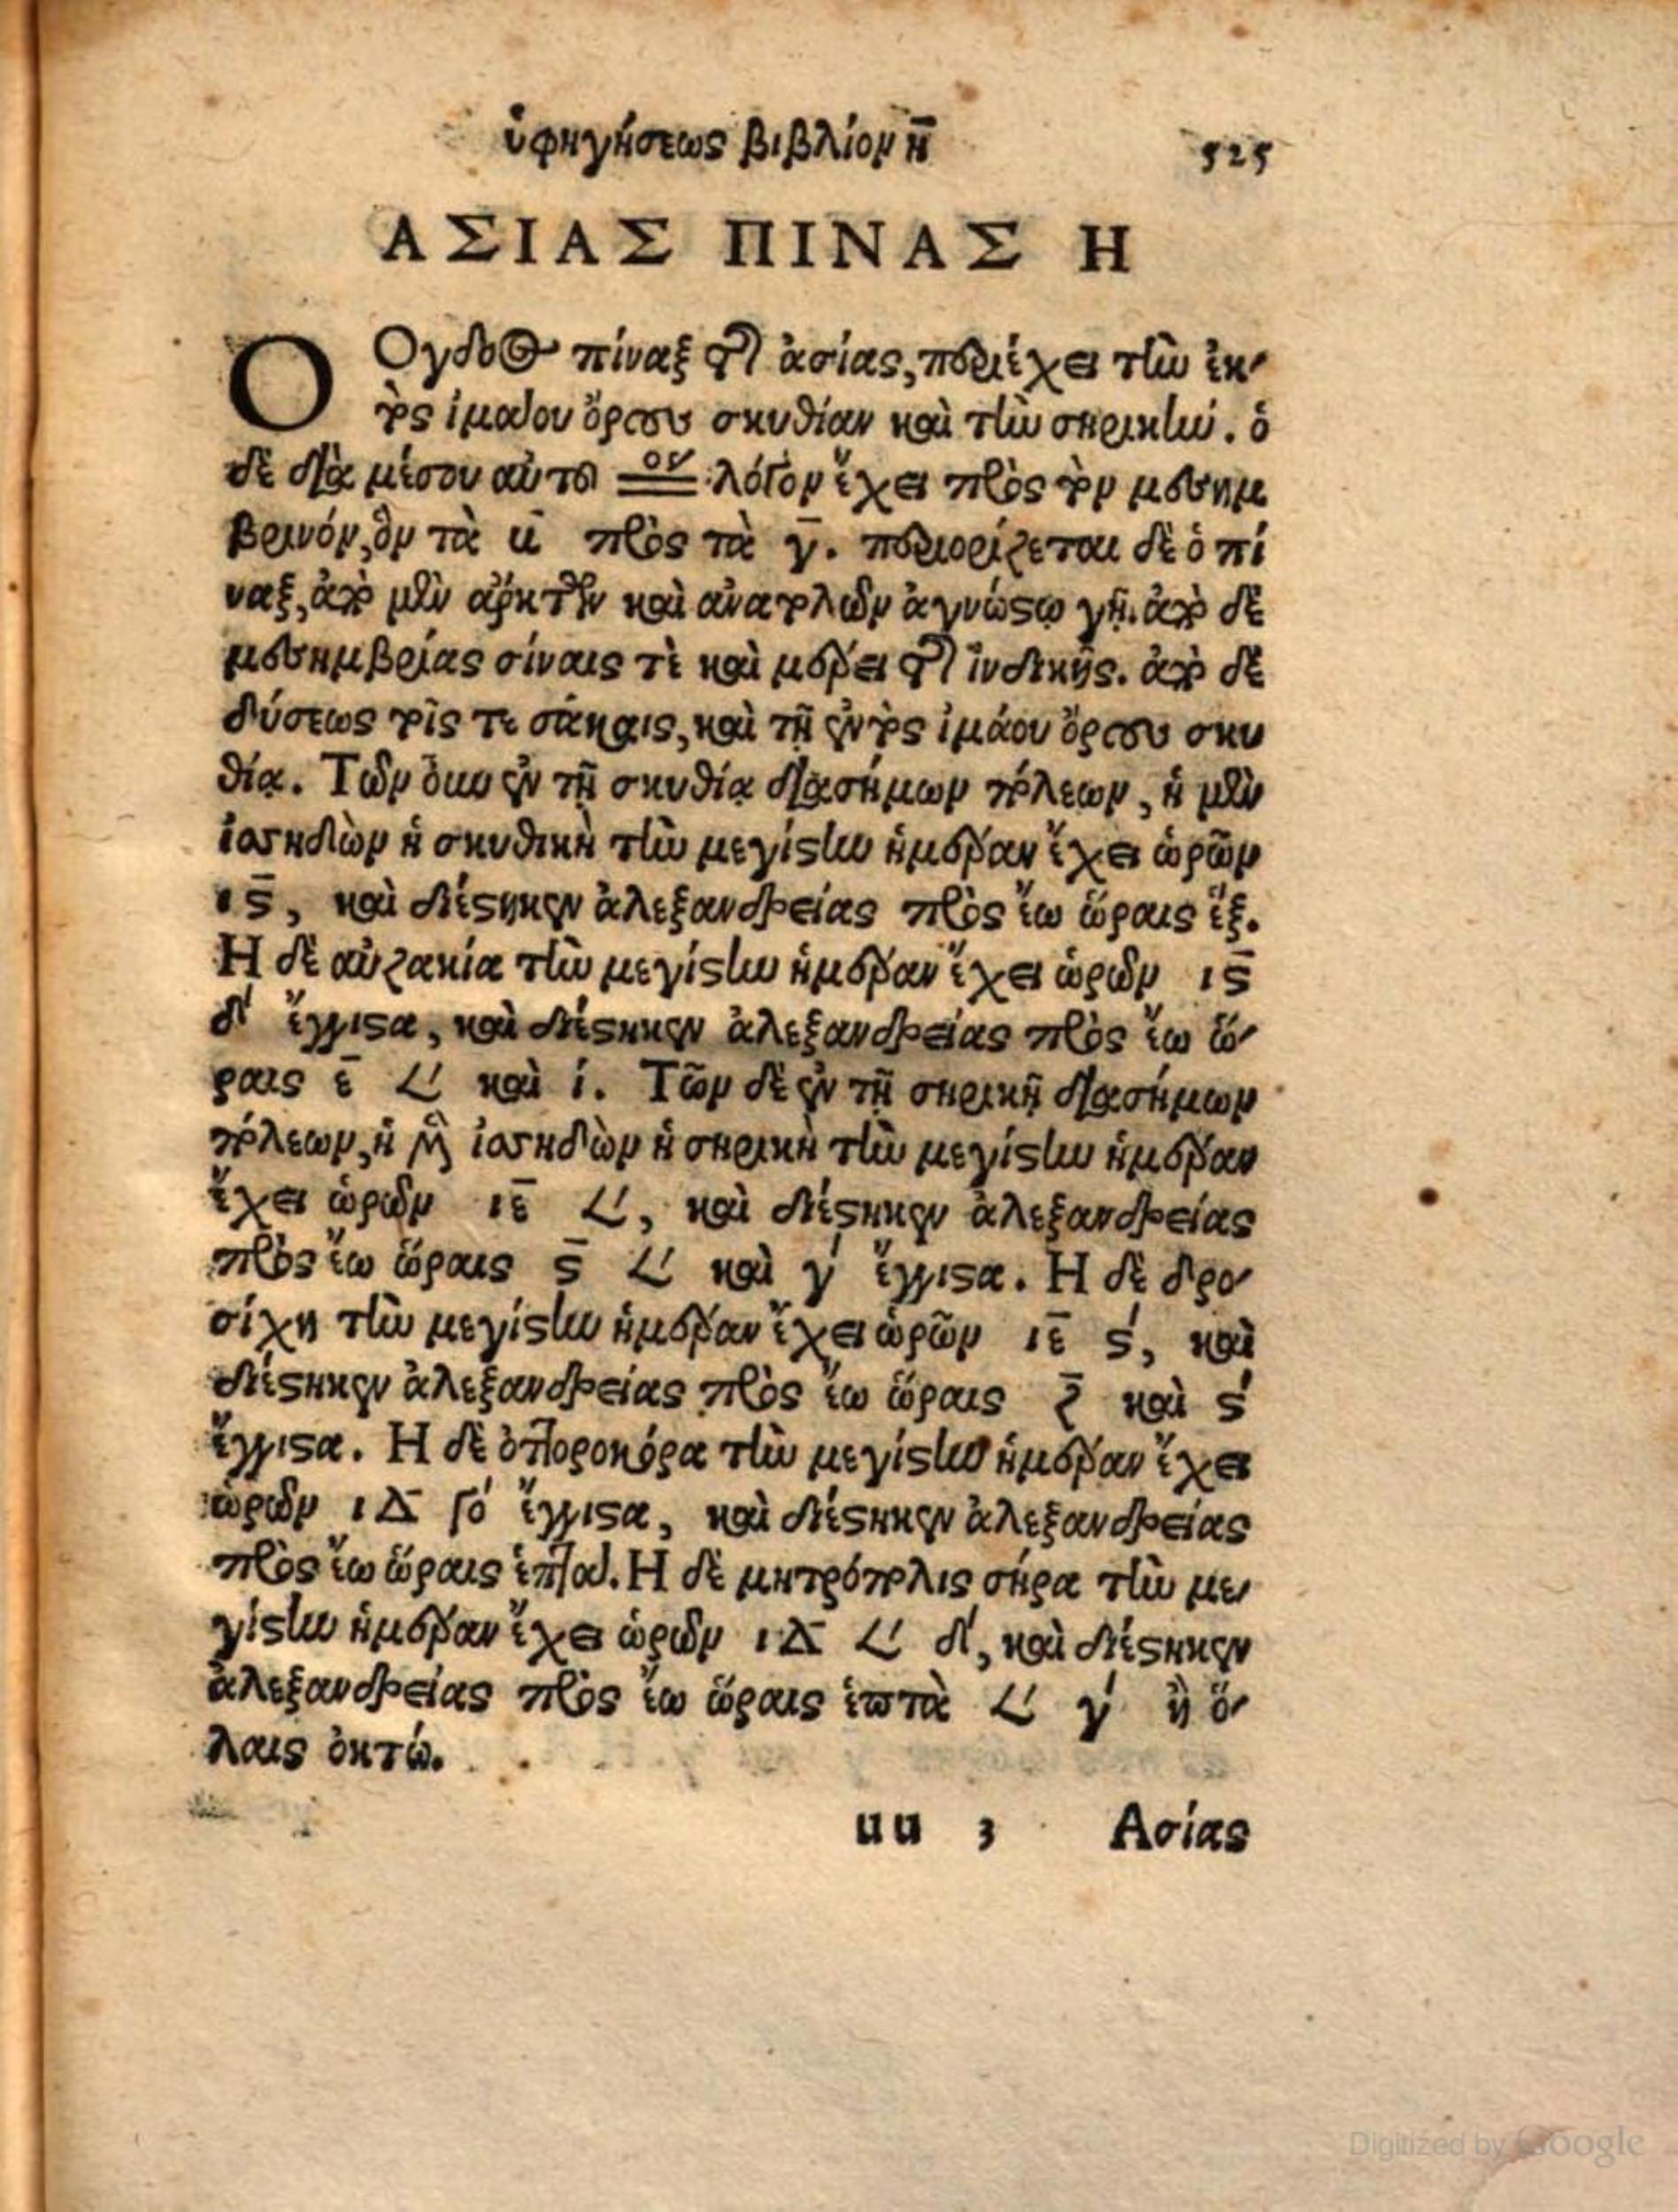 ὑφηγήσεως βιβλίον η̄ 525
ΑΣΙΑΣ ΠΙΝΑΣ Η
Ογδοος πίναξ τῆς ἀσίας, περιέχει τὴν ἐκ-
Ο τὸς ἰμαίου ὄρους σκυθίαν καὶ τὴν σηρικήν. ὁ
δὲ διὰ μέσου αὐτοῦ λόγον ἔχει πρὸς τὸν μεσημ
βρινόν, ὃν τὰ πρὸς τὰ γ̄. περιορίζεται δὲ ὁ πί
ναξ, ἀπὸ μὲν ἄρκτων καὶ ἀνατολῶν ἀγνώστῳ γῇ. ἀπὸ δὲ
μεσημβρίας σίναις τὲ καὶ μέρει τῆς ἰνδικῆς. ἀπὸ δὲ
δύσεως τοῖς τε σάκαις, καὶ τῇ ἐντὸς ἰμάου ὄρους σκυ
θίᾳ. Τῶν οὖν ἐν τῇ σκυθίᾳ διασήμων πόλεων, ἡ μὲν
ἰασηδὼν ἡ σκυθικὴ τὴν μεγίστην ἡμέραν ἔχει ὡρῶν
ιϛ̄, καὶ διέστηκεν ἀλεξανδρείας πρὸς ἕω ὥραις ἕξ.
Η δὲ αὐζακία τὴν μεγίστην ἡμέραν ἔχει ὡρῶν ιϛ̄
δ' ἔγγιστα, καὶ διέστηκεν ἀλεξανδρείας πρὸς ἕω ὥ-
ραις ε̄ 𐅵 καὶ ί. Τῶν δὲ ἐν τῇ σηρικῇ διασήμων
πόλεων, ἡ μὲν ἰσσηδὼν ἡ σηρικὴ τὴν μεγίστην ἡμέραν
ἔχει ὡρῶν ιε̄ 𐅵, καὶ διέστηκεν ἀλεξανδρείας
πρὸς ἕω ὥραις ϛ̄ 𐅵 καὶ γ' ἔγγιστα. Η δὲ δρο-
σίχη τὴν μεγίστην ἡμέραν ἔχει ὡρῶν ιε̄ ϛ', καὶ
διέστηκεν ἀλεξανδρείας πρὸς ἕω ὥραις ζ̄ καὶ ϛ'
ἔγγιστα. Η δὲ ὀττοροκόρα τὴν μεγίστην ἡμέραν ἔχει
ὡρῶν ιΔ γό ἔγγιστα, καὶ διέστηκεν ἀλεξανδρείας
πρὸς ἕω ὥραις ἑπτά. Η δὲ μητρόπολις σήρα τὴν με-
γίστην ἡμέραν ἔχει ὡρῶν ιΔ 𐅵 δ', καὶ διέστηκεν
ἀλεξανδρείας πρὸς ἕω ὥραις ἑπτὰ 𐅵 γ' ἢ ὅ-
λαις ὀκτώ.
uu 3 Ασίας
Digitized by Google